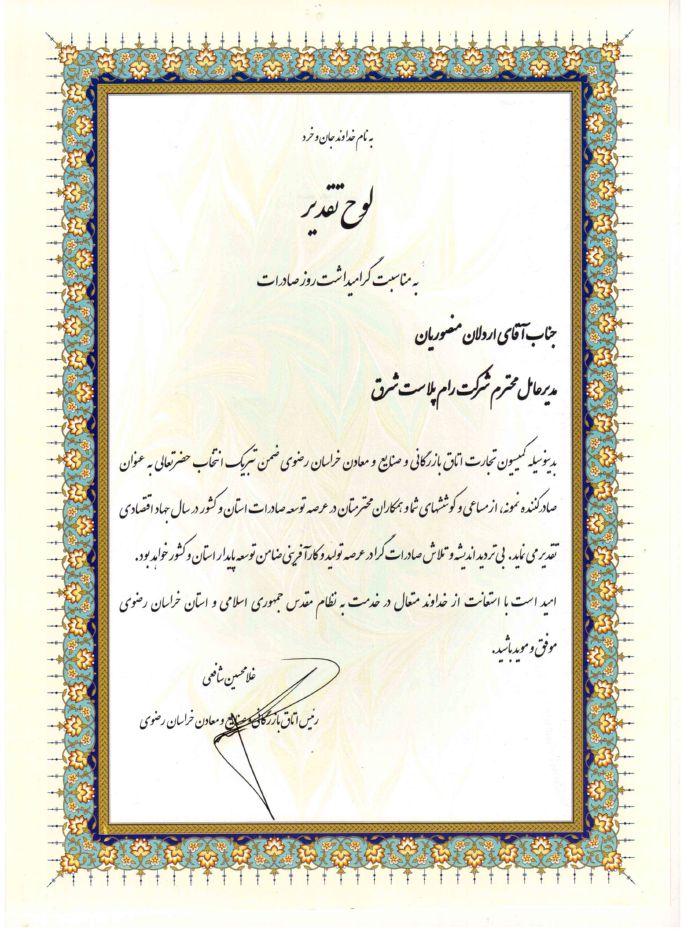 به نام خداوند جان و خرد
لوح تقدیر
به مناسبت گرامیداشت روز صادرات
جناب آقای اردلان منصوریان
مدیرعامل محترم شرکت رام پلاست شرق
بدینوسیله کمیسیون تجارت اتاق بازرگانی و صنایع و معادن خراسان رضوی ضمن تبریک انتخاب حضرتعالی به عنوان
صادرکننده نمونه، از مساعی و کوششهای شما و همکاران محترمتان در عرصه توسعه صادرات استان و کشور در سال جهاد اقتصادی
تقدیر می نماید. بی تردید اندیشه و تلاش صادرات گرا در عرصه تولید و کارآفرینی ضامن توسعه پایدار استان و کشور خواهد بود.
امید است با استعانت از خداوند متعال در خدمت به نظام مقدس جمهوری اسلامی و استان خراسان رضوی
موفق و موید باشید.
غلامحسین شافعی
رئیس اتاق بازرگانی و صنایع و معادن خراسان رضوی